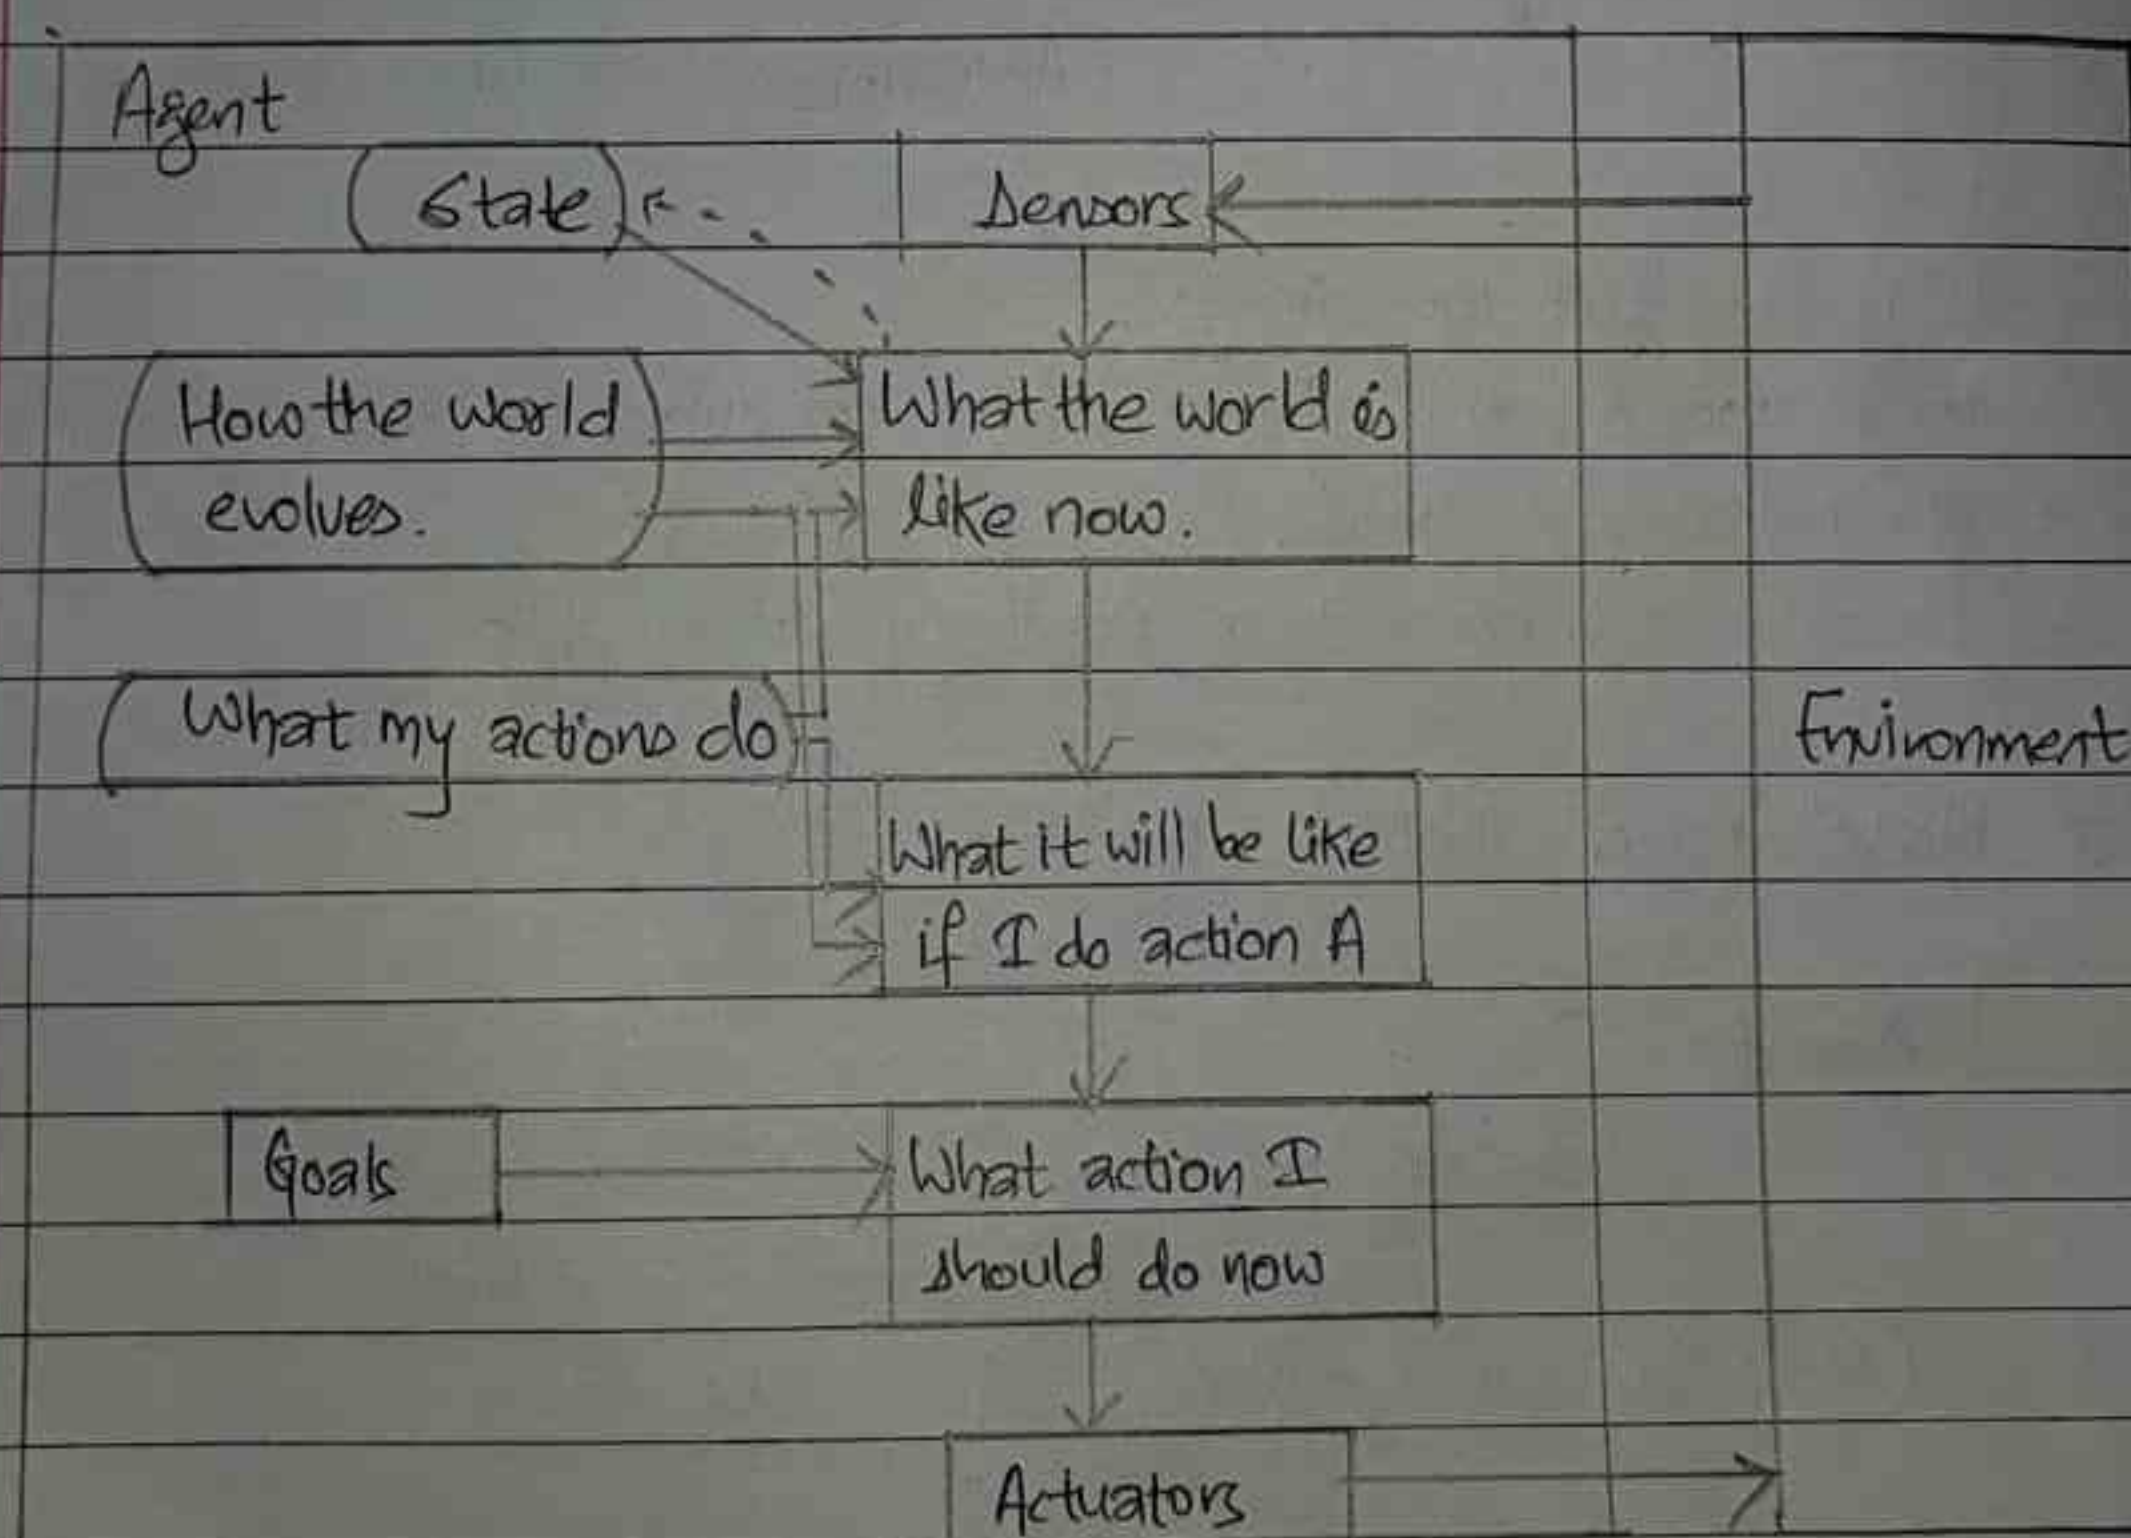 Agent
State
Sensors
How the world
evolves.
What the world is
like now.
What my actions do
Environment
What it will be like
if I do action A
Goals
What action I
should do now
Actuators